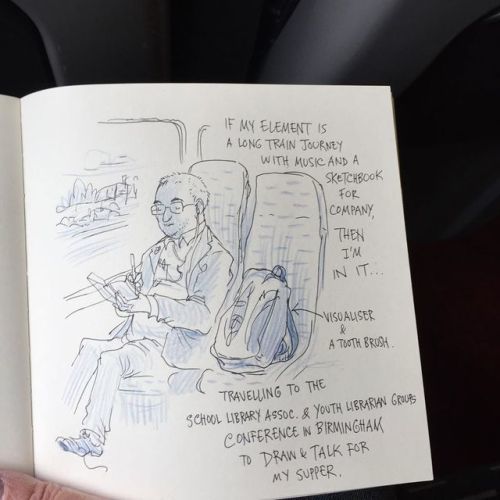 IF MY ELEMENT IS
A LONG TRAIN JOURNEY
WITH MUSIC AND A
SKETCHBOOK
FOR
COMPANY,
THEN
I'M
IN IT...
VISUALISER
&
A TOOTH BRUSH.
TRAVELLING TO THE
SCHOOL LIBRARY ASSOC. & YOUTH LIBRARIAN GROUPS
CONFERENCE IN BIRMINGHAM
TO DRAW & TALK FOR
MY SUPPER.